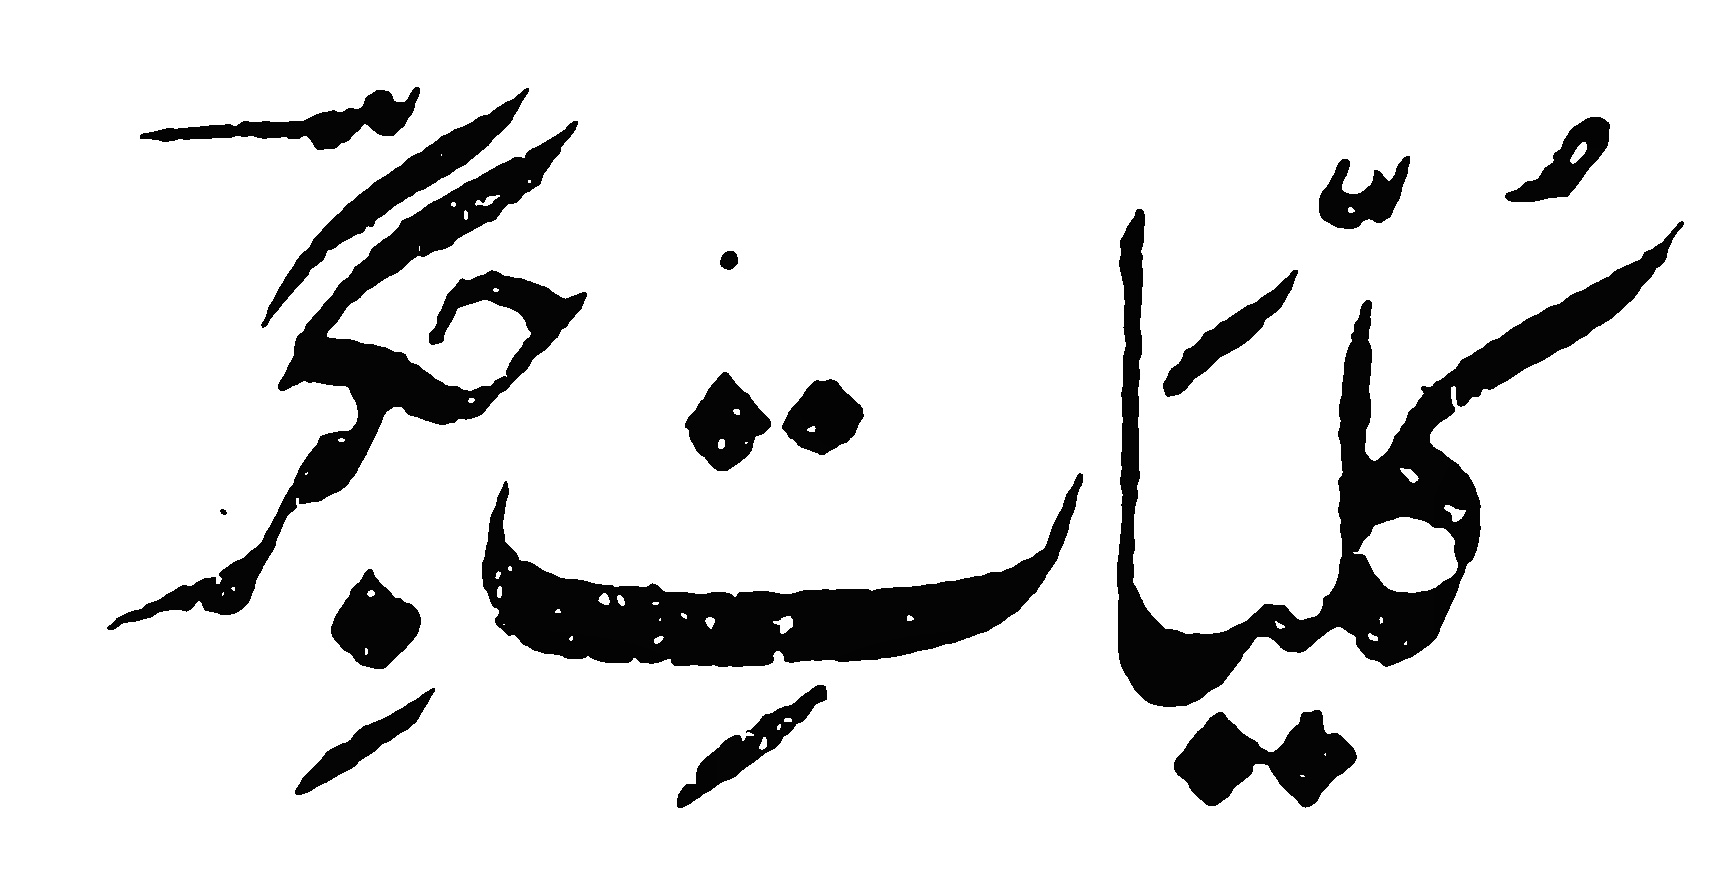 کُلِّیَاتِ جِگرؔ